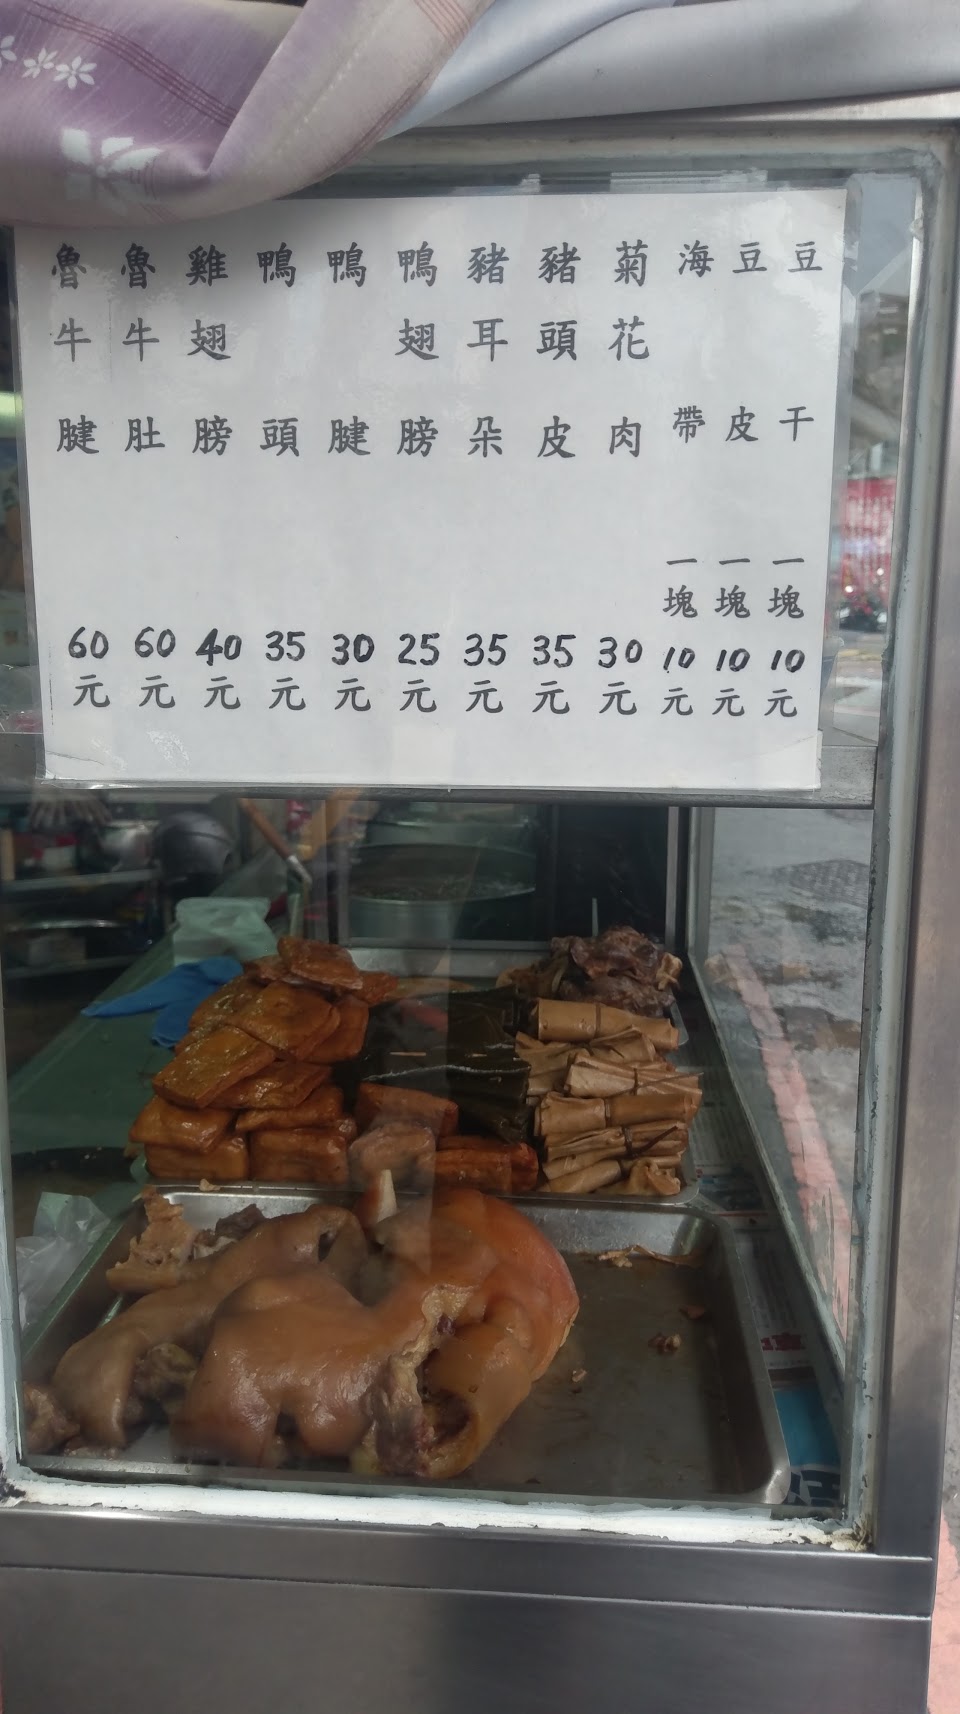 豆干一塊10元
豆皮一塊10元
海帶一塊10元
菊花肉30元
豬頭皮35元
豬耳朵35元
鴨翅膀25元
鴨腱30元
鴨頭35元
雞翅膀40元
魯牛肚60元
魯牛腱60元